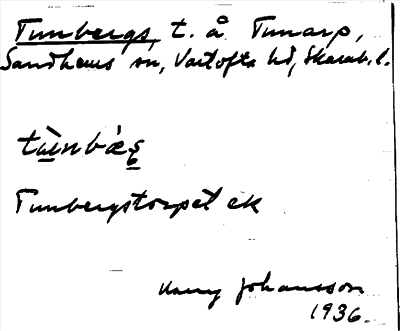 Tunbergs, t. å Tunarp,
Sandhems sn, Vartofta hd, Skarab. l.
tùnbæ̀s
Tunbergstorpet ek
Harry Johansson
1936.